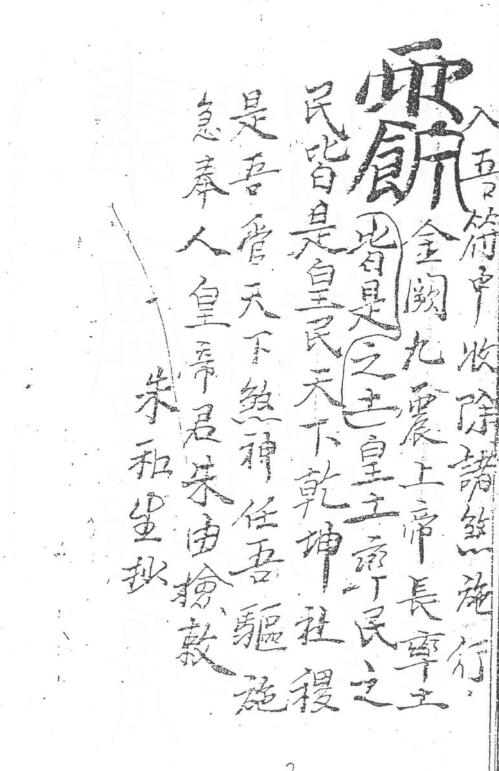 入吾符中收除諸煞施行
金闕九震上帝長率土
皆是之土皇土率民之
民皆是皇民天下乾坤社稷
是吾管天下煞神任吾驅施
急奉人皇帝君朱由檢敕
朱和生抄